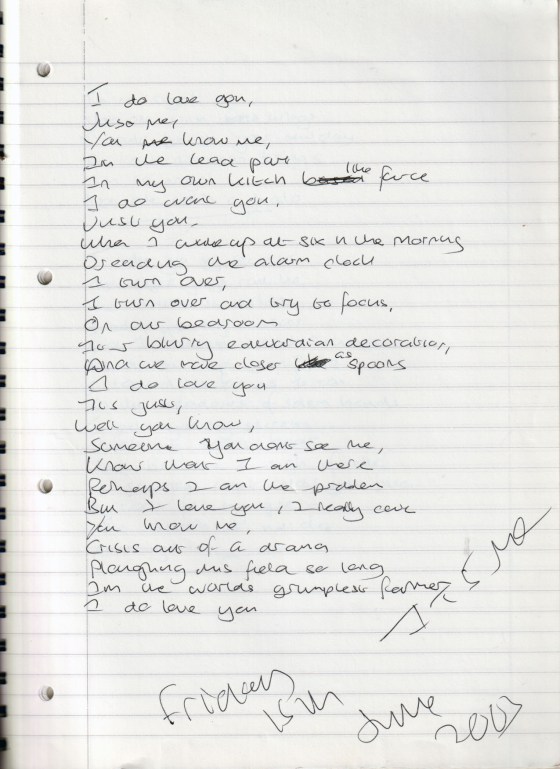 I do love you,
Just me,
You me know me,
Im the lead part
In my own kitch like farce
I do want you,
Just you.
When I wake up at six in the morning
Dreading the alarm clock
I turn over,
I turn over and try to focus,
On our bedroom
blurry edwardian decoration,
And we move closer as spoons
I do love you
Its just,
Well you know,
Sometimes you dont see me,
Know that I am there
Perhaps I am the problem
But I love you, I really care
You know me,
Crisis out of a drama
Ploughing this field so long
Im the worlds grumpiest farmer
I do love you
Friday
15th
June
2003